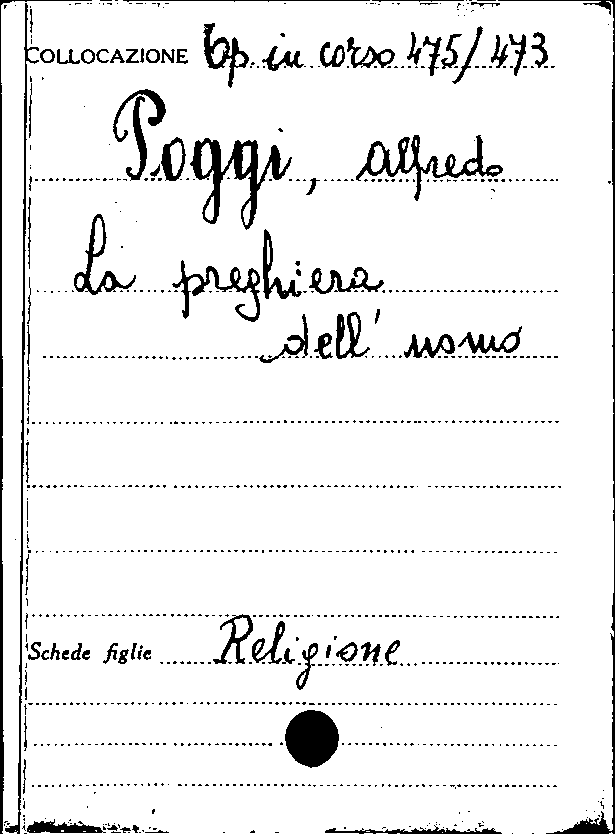 COLLOCAZIONE Op. in corso 475/473
Poggi, Alfredo
La preghiera
dell'uomo
Schede figlie Religione